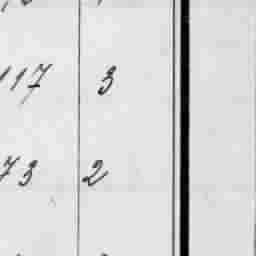 117 3
73 2